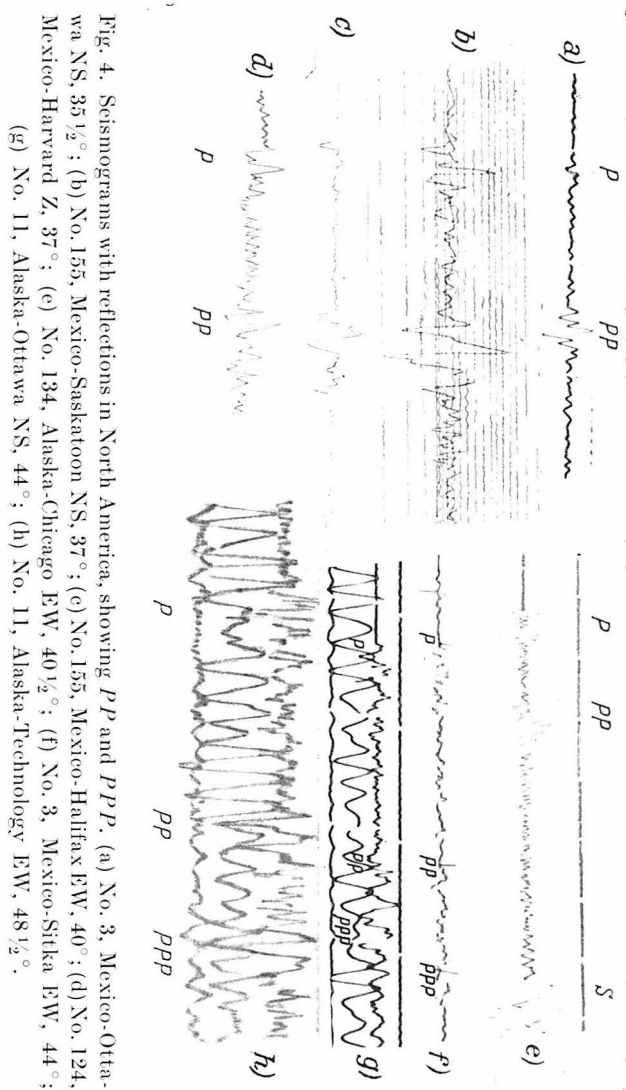 a)
P
PP
b)
c)
d)
P
PP
P
PP
S
e)
P
PP
PPP
f)
P
PP
PPP
g)
P
PP
PPP
h)
Fig. 4. Seismograms with reflections in North America, showing PP and PPP. (a) No. 3, Mexico-Otta-
wa NS, 35½°; (b) No. 155, Mexico-Saskatoon NS, 37°; (c) No. 155, Mexico-Halifax EW, 40°; (d) No. 124,
Mexico-Harvard Z, 37°; (e) No. 134, Alaska-Chicago EW, 40½°; (f) No. 3, Mexico-Sitka EW, 44°;
(g) No. 11, Alaska-Ottawa NS, 44°; (h) No. 11, Alaska-Technology EW, 48½°.